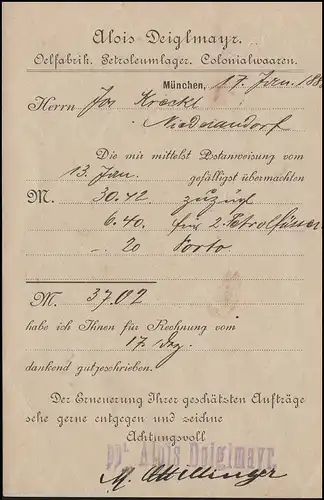 Alois Deiglmayr.
Oelfabrik. Petroleumlager. Colonialwaaren.
München, 17. Jan. 188
Herrn Jos
Niederaudorf
Die mir mittelst Postanweisung vom
13. Jan. gefälligst übermachten
M. 30.42 zuzügl
6.40. für 2 Petrolfässer
-. 20 Porto
M. 37.02
habe ich Ihnen für Rechnung vom
17. Dez.
dankend gutgeschrieben.
Der Erneuerung Ihrer geschätzten Aufträge
sehe gerne entgegen und zeichne
Achtungsvoll
ppa Alois Deiglmayr